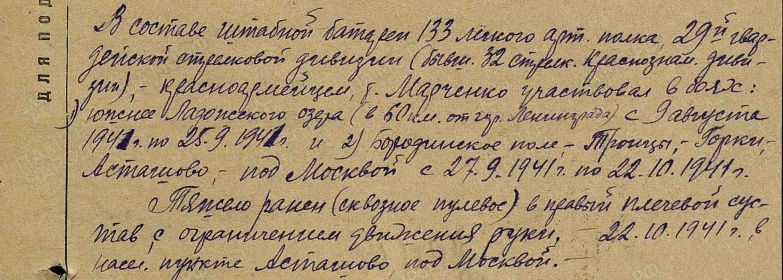 В составе штабной батареи 133 легкого арт. полка, 29й гвар-
дейской стрелковой дивизии (бывш. 32 стрелк. Краснознам. диви-
зии), - красноармейцем, т. Марченко участвовал в боях:
1) южнее Ладожского озера (в 60 км. от гор. Ленинграда) с 9 августа
1941г. по 25.9.1941г. и 2) Бородинское поле, - Троицы, - Горки, -
Асташово, - под Москвой с 27.9.1941г. по 22.10.1941г.
Тяжело ранен (сквозное пулевое) в правый плечевой сус-
тав, с ограничением движения руки, - 22.10.1941г. в
насел. пункте Асташово, под Москвой. -
ДЛЯ ПОД